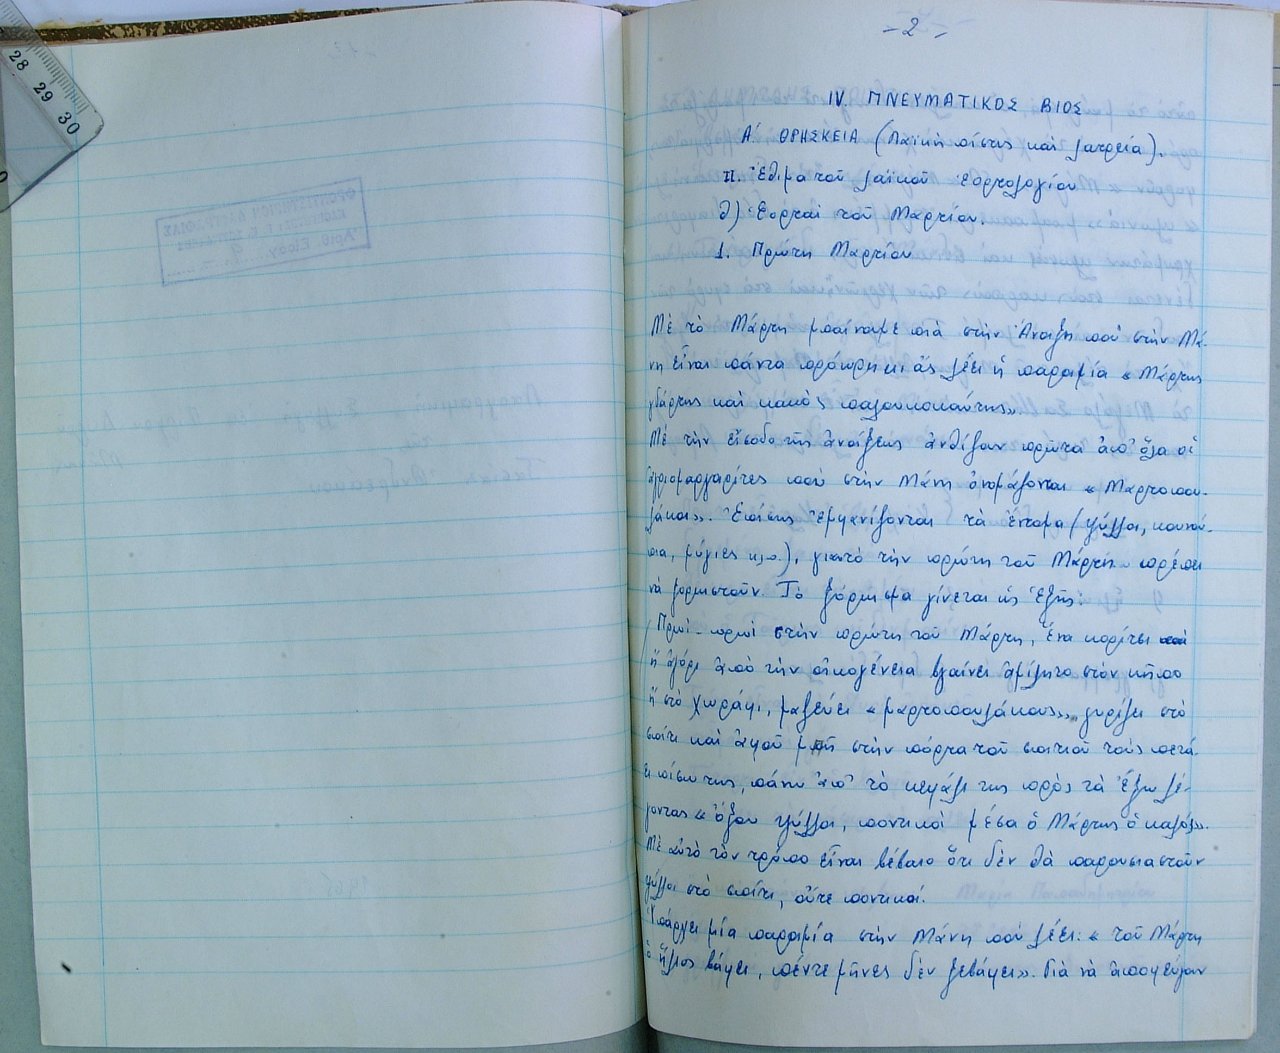 - 2 -
IV ΠΝΕΥΜΑΤΙΚΟΣ ΒΙΟΣ
Α΄. ΘΡΗΣΚΕΙΑ (Λαϊκὴ πίστις καὶ λατρεία).
π. Ἔθιμα τοῦ λαϊκοῦ ἑορτολογίου
δ) Ἑορταὶ τοῦ Μαρτίου
1. Πρώτη Μαρτίου
Μὲ τὸ Μάρτη μπαίναμε πιὰ στὴν Ἄνοιξη ποὺ στὴν Μά-
νη εἶναι πάντα πρόωρη κι ἂς λέει ἡ παροιμία « Μάρτης
γδάρτης καὶ κακὸς παλουκοκαύτης».
Μὲ τὴν εἴσοδο τῆς ἀνοίξεως ἀνθίζουν πρῶτα ἀπ' ὅλα οἱ
ἀγριομαργαρίτες ποὺ στὴν Μάνη ὀνομάζονται « Μαρτοπου-
λάκοι». Ἐπίσης ἐμφανίζονται τὰ ἔντομα (ψύλλοι, κουνού-
πια, μύγιες κ.ο.), γιαυτὸ τὴν πρώτη τοῦ Μάρτη πρέπει
νὰ ξορκιστοῦν. Τὸ ξόρκισμα γίνεται ὡς ἑξῆς:
Πρωΐ - πρωΐ στὴν πρώτη τοῦ Μάρτη, ἕνα κορίτσι
ἢ ἀγόρι ἀπὸ τὴν οἰκογένεια βγαίνει ἀμίλητο στὸν κῆπο
ἢ στὸ χωράφι, μαζεύει « μαρτοπουλάκους», γυρίζει στὸ
σπίτι καὶ ἀφοῦ μπῆ στὴν πόρτα τοῦ σπιτιοῦ τοὺς πετά-
ει πίσω της, πάνω ἀπ' τὸ κεφάλι της πρὸς τὰ ἔξω λέ-
γοντας « ὄξου ψύλλοι, ποντικοὶ μέσα ὁ Μάρτης ὁ καλός».
Μὲ αὐτὸ τὸν τρόπο εἶναι βέβαιο ὅτι δὲν θὰ παρουσιαστοῦν
ψύλλοι στὸ σπίτι, οὔτε ποντικοί.
Ὑπάρχει μία παροιμία στὴν Μάνη ποὺ λέει: « τοῦ Μάρτη
ὁ ἥλιος βάφει, πέντε μῆνες δὲν ξεβάφει». Γιὰ νὰ ἀποφεύγουν
28 29 30